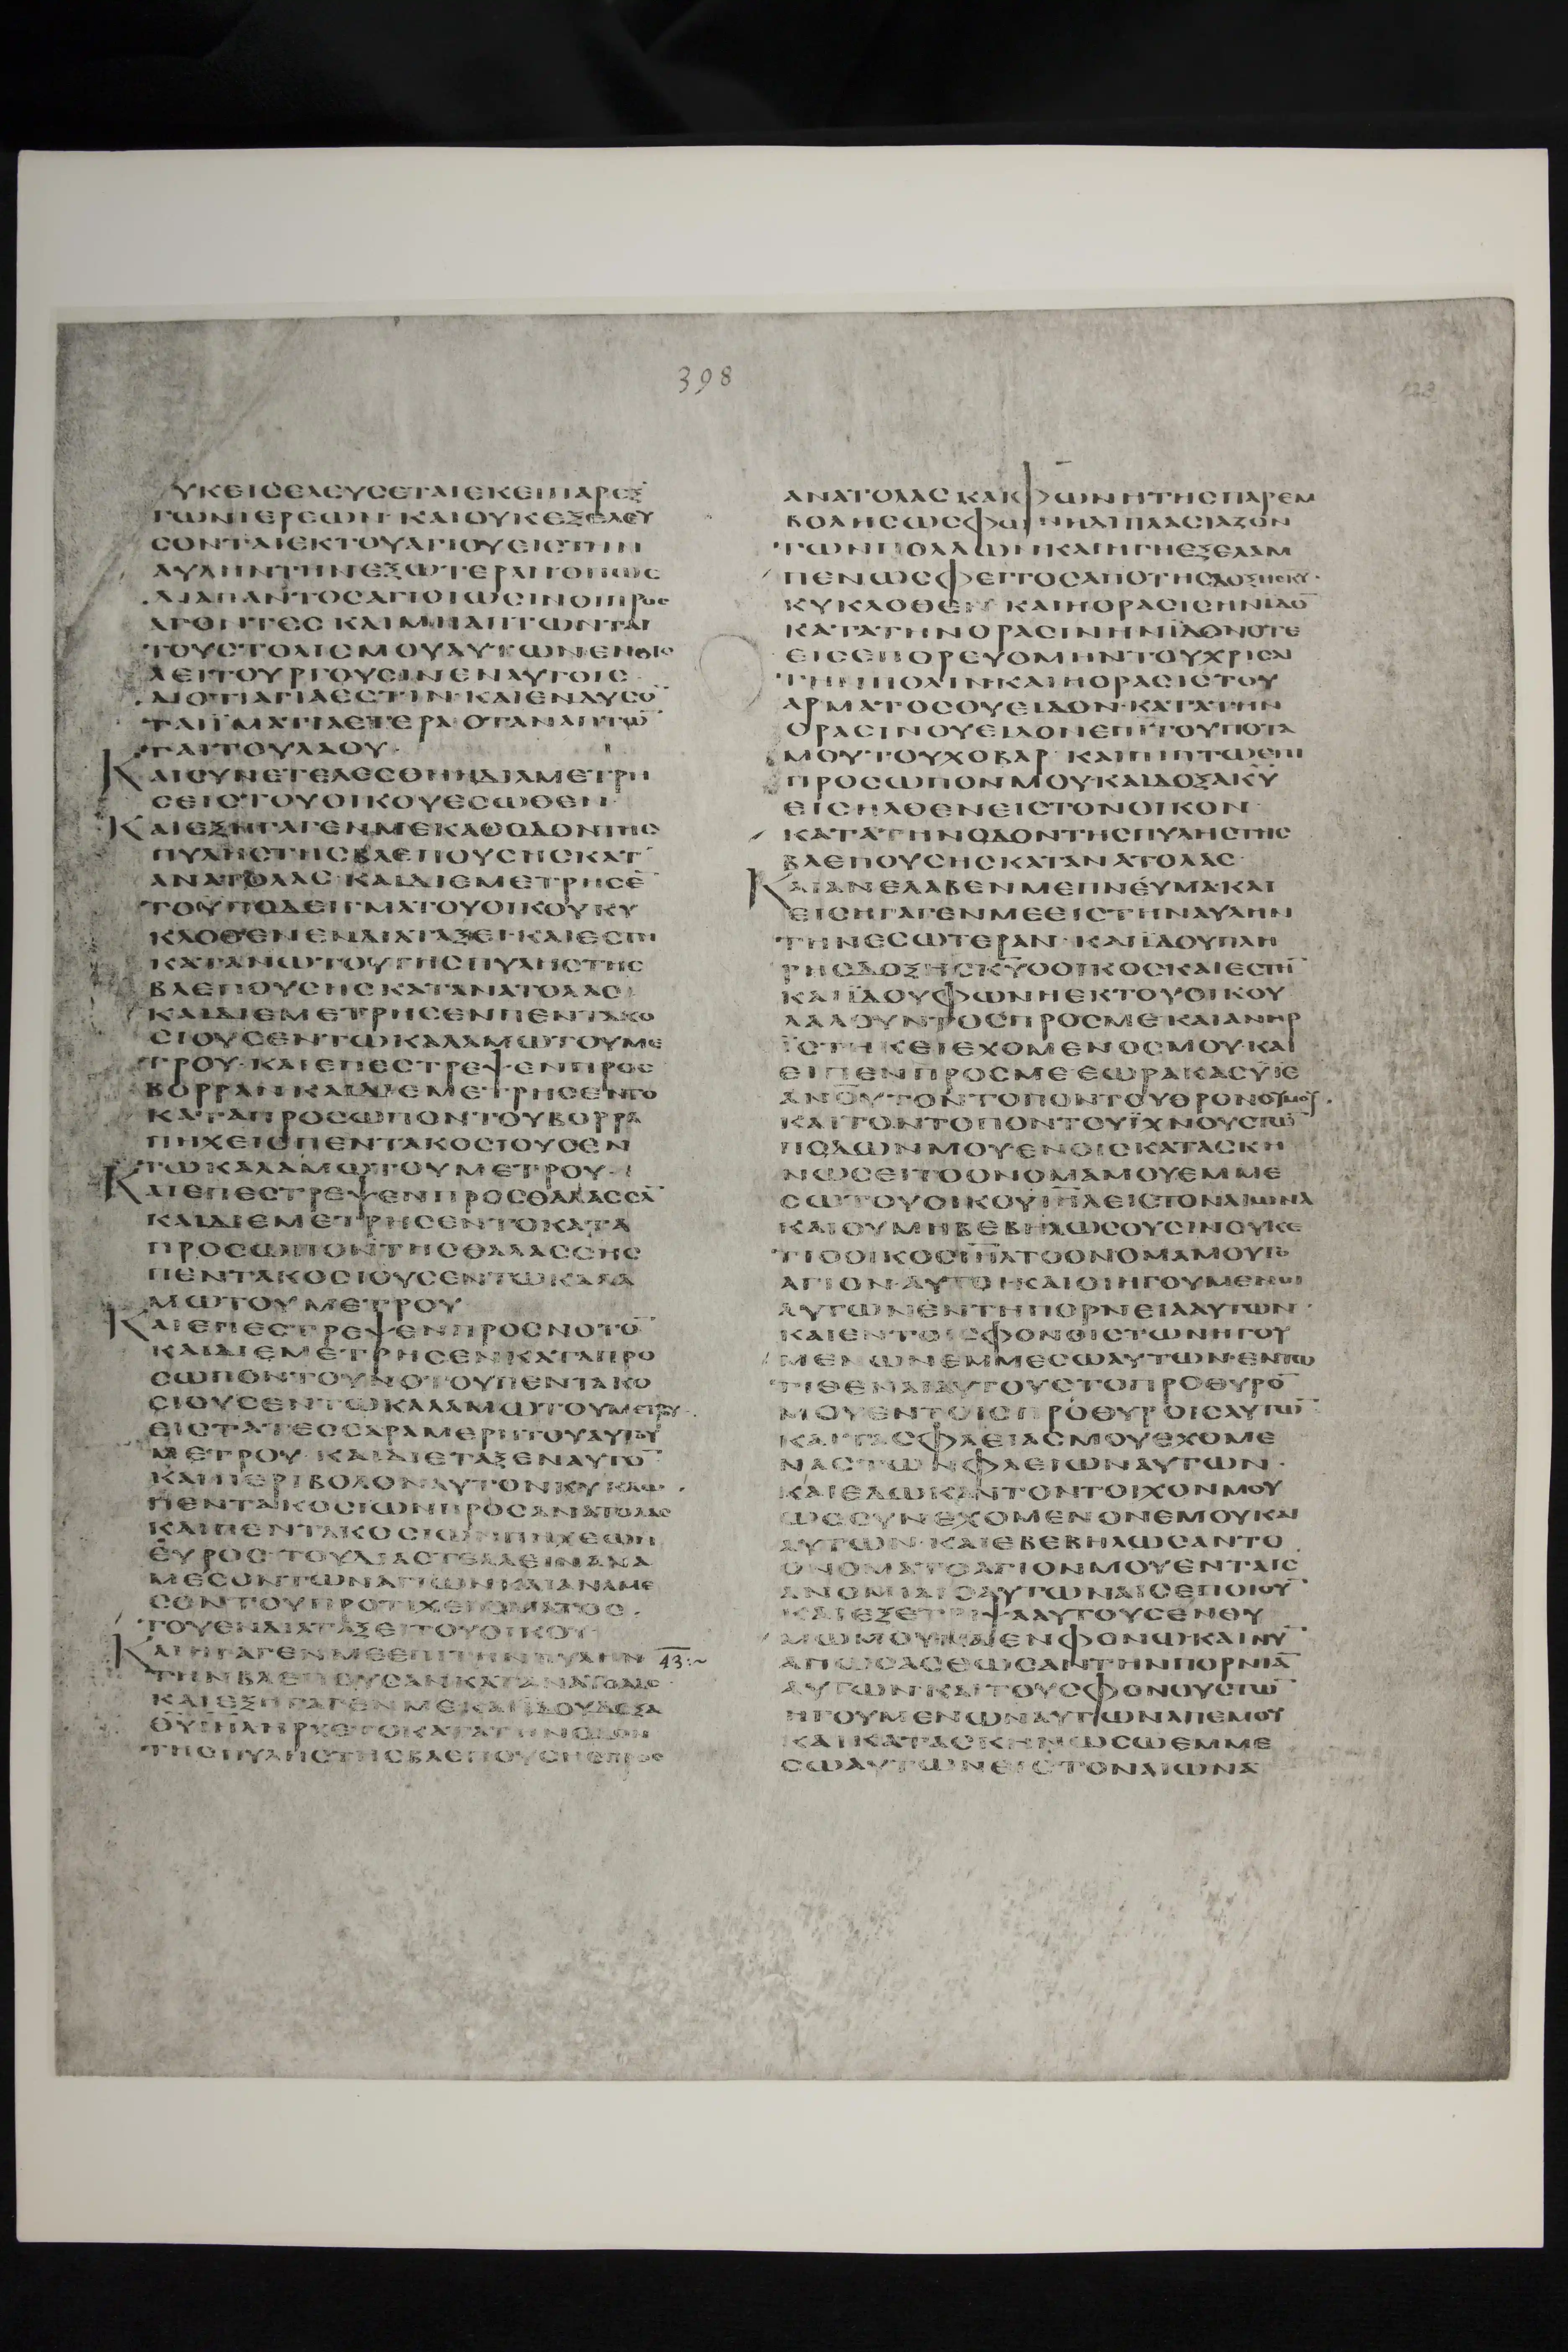 398
ΥΚΕΙΣΕΛΕΥΣΕΤΑΙΕΚΕΙΠΑΡΕΞ
ΤΩΝΙΕΡΕΩΝ· ΚΑΙΟΥΚΕΞΕΛΕΥ
ΣΟΝΤΑΙΕΚΤΟΥΑΓΙΟΥΕΙΣΤΗΝ
ΑΥΛΗΝΤΗΝΕΞΩΤΕΡΑΝ
ΔΙΑΠΑΝΤΟΣΑΓΙΟΙΩΣΙΝΟΙΠΡΟΣ
ΑΓΟΝΤΕΣ ΚΑΙΜΗΑΠΤΩΝΤΑΙ
ΤΟΥΣΤΟΛΙΣΜΟΥΑΥΤΩΝΕΝΟΙΣ
ΛΕΙΤΟΥΡΓΟΥΣΙΝΕΝΑΥΤΟΙΣ
ΔΙΟΤΙΑΓΙΑΕΣΤΙΝ· ΚΑΙΕΝΔΥΣΟ̅
ΤΑΙΪΜΑΤΙΑΕΤΕΡΑ ΟΤΑΝΑΠΤΩ̅
ΤΑΙΤΟΥΛΑΟΥ·
ΚΑΙΣΥΝΕΤΕΛΕΣΘΗΗΔΙΑΜΕΤΡΗ
ΣΕΙΣΤΟΥΟΙΚΟΥΕΣΩΘΕΝ·
ΚΑΙΕΞΗΓΑΓΕΝΜΕΚΑΘΟΔΟΝΤΗΣ
ΠΥΛΗΣΤΗΣΒΛΕΠΟΥΣΗΣΚΑΤ
ΑΝΑΤΟΛΑΣ· ΚΑΙΔΙΕΜΕΤΡΗΣΕ̅
ΤΟΥΠΟΔΕΙΓΜΑΤΟΥΟΙΚΟΥΚΥ
ΚΛΟΘΕΝΕΝΔΙΑΤΑΞΕΙ· ΚΑΙΕΣΤΗ
ΚΑΤΑΝΩΤΟΥΤΗΣΠΥΛΗΣΤΗΣ
ΒΛΕΠΟΥΣΗΣΚΑΤΑΝΑΤΟΛΑΣ
ΚΑΙΔΙΕΜΕΤΡΗΣΕΝΠΕΝΤΑΚΟ
ΣΙΟΥΣΕΝΤΩΚΑΛΑΜΩΤΟΥΜΕ
ΤΡΟΥ· ΚΑΙΕΠΕΣΤΡΕΨΕΝΠΡΟΣ
ΒΟΡΡΑΝΚΑΙΔΙΕΜΕΤΡΗΣΕΝΤΟ
ΚΑΤΑΠΡΟΣΩΠΟΝΤΟΥΒΟΡΡΑ
ΠΗΧΕΙΣΠΕΝΤΑΚΟΣΙΟΥΣΕΝ
ΤΩΚΑΛΑΜΩΤΟΥΜΕΤΡΟΥ·
ΚΑΙΕΠΕΣΤΡΕΨΕΝΠΡΟΣΘΑΛΑΣΣΑ̅
ΚΑΙΔΙΕΜΕΤΡΗΣΕΝΤΟΚΑΤΑ
ΠΡΟΣΩΠΟΝΤΗΣΘΑΛΑΣΣΗΣ
ΠΕΝΤΑΚΟΣΙΟΥΣΕΝΤΩΚΑΛΑ
ΜΩΤΟΥΜΕΤΡΟΥ
ΚΑΙΕΠΕΣΤΡΕΨΕΝΠΡΟΣΝΟΤΟ̅
ΚΑΙΔΙΕΜΕΤΡΗΣΕΝΚΑΤΑΠΡΟ
ΣΩΠΟΝΤΟΥΝΟΤΟΥΠΕΝΤΑΚΟ
ΣΙΟΥΣΕΝΤΩΚΑΛΑΜΩΤΟΥΜΕΤΡΟΥ·
ΕΙΣΤΑΤΕΣΣΑΡΑΜΕΡΗΤΟΥΑΥΤΟΥ
ΜΕΤΡΟΥ· ΚΑΙΔΙΕΤΑΞΕΝΑΥΤΟ̅
ΚΑΙΠΕΡΙΒΟΛΟΝΑΥΤΟΝΚΥΚΛΩ·
ΠΕΝΤΑΚΟΣΙΩΝΠΡΟΣΑΝΑΤΟΛΑΣ
ΚΑΙΠΕΝΤΑΚΟΣΙΩΝΠΗΧΕΩΝ
ΕΥΡΟΣ· ΤΟΥΔΙΑΣΤΕΛΛΕΙΝΑΝΑ
ΜΕΣΟΝΤΩΝΑΓΙΩΝΚΑΙΑΝΑΜΕ
ΣΟΝΤΟΥΠΡΟΤΙΧΕΙΣΜΑΤΟΣ·
ΤΟΥΕΝΔΙΑΤΑΞΕΙΤΟΥΟΙΚΟΥ
ΚΑΙΗΓΑΓΕΝΜΕΕΠΙΤΗΝΠΥΛΗΝ 43:~
ΤΗΝΒΛΕΠΟΥΣΑΝΚΑΤΑΝΑΤΟΛΑΣ·
ΚΑΙΕΞΗΓΑΓΕΝΜΕΚΑΙΙΔΟΥΔΟΞΑ
Θ̅Υ̅Ι̅Η̅Λ̅ΗΡΧΕΤΟΚΑΤΑΤΗΝΟΔΟΝ
ΤΗΣΠΥΛΗΣΤΗΣΒΛΕΠΟΥΣΗΣΠΡΟΣ
ΑΝΑΤΟΛΑΣ ΚΑΙΦΩΝΗΤΗΣΠΑΡΕΜ
ΒΟΛΗΣΩΣΦΩΝΗΔΙΠΛΑΣΙΑΖΟΝ
ΤΩΝΠΟΛΛΩΝΚΑΙΗΓΗΕΞΕΛΑΜ
ΠΕΝΩΣΦΕΓΓΟΣΑΠΟΤΗΣΔΟΞΗΣΚΥ·
ΚΥΚΛΟΘΕΝ ΚΑΙΗΟΡΑΣΙΣΗΝΙΔΟ̅
ΚΑΤΑΤΗΝΟΡΑΣΙΝΗΝΪΔΟΝΟΤΕ
ΕΙΣΕΠΟΡΕΥΟΜΗΝΤΟΥΧΡΙΣΑΙ
ΤΗΝΠΟΛΙΝ· ΚΑΙΗΟΡΑΣΙΣΤΟΥ
ΑΡΜΑΤΟΣΟΥΕΙΔΟΝ· ΚΑΤΑΤΗΝ
ΟΡΑΣΙΝΟΥΕΙΔΟΝΕΠΙΤΟΥΠΟΤΑ
ΜΟΥΤΟΥΧΟΒΑΡ· ΚΑΙΠΙΠΤΩΕΠΙ
ΠΡΟΣΩΠΟΝΜΟΥΚΑΙΔΟΞΑΚ̅Υ̅
ΕΙΣΗΛΘΕΝΕΙΣΤΟΝΟΙΚΟΝ·
ΚΑΤΑΤΗΝΟΔΟΝΤΗΣΠΥΛΗΣΤΗΣ
ΒΛΕΠΟΥΣΗΣΚΑΤΑΝΑΤΟΛΑΣ·
ΚΑΙΑΝΕΛΑΒΕΝΜΕΠΝΕΥΜΑ· ΚΑΙ
ΕΙΣΗΓΑΓΕΝΜΕΕΙΣΤΗΝΑΥΛΗΝ
ΤΗΝΕΣΩΤΕΡΑΝ· ΚΑΙΪΔΟΥΠΛΗ
ΡΗΣΔΟΞΗΣΚ̅Υ̅ΟΟΙΚΟΣΚΑΙΕΣΤΗ̅
ΚΑΙΪΔΟΥΦΩΝΗΕΚΤΟΥΟΙΚΟΥ
ΛΑΛΟΥΝΤΟΣΠΡΟΣΜΕΚΑΙΑΝΗΡ
ΪΣΤΗΚΕΙΕΧΟΜΕΝΟΣΜΟΥ· ΚΑΙ
ΕΙΠΕΝΠΡΟΣΜΕΕΩΡΑΚΑΣΥΙΕ
Α̅Ν̅Ο̅Υ̅ΤΟΝΤΟΠΟΝΤΟΥΘΡΟΝΟΥΜΟΥ·
ΚΑΙΤΟΝΤΟΠΟΝΤΟΥΪΧΝΟΥΣΤΩ̅
ΠΟΔΩΝΜΟΥΕΝΟΙΣΚΑΤΑΣΚΗ
ΝΩΣΕΙΤΟΟΝΟΜΑΜΟΥΕΜΜΕ
ΣΩΤΟΥΟΙΚΟΥΙ̅Η̅Λ̅ΕΙΣΤΟΝΑΙΩΝΑ
ΚΑΙΟΥΜΗΒΕΒΗΛΩΣΟΥΣΙΝΟΥΚΕ
ΤΙΟΟΙΚΟΣΙ̅Η̅Λ̅ΤΟΟΝΟΜΑΜΟΥΤΟ
ΑΓΙΟΝ· ΑΥΤΟΙΚΑΙΟΙΗΓΟΥΜΕΝΟΙ
ΑΥΤΩΝΕΝΤΗΠΟΡΝΕΙΑΑΥΤΩΝ·
ΚΑΙΕΝΤΟΙΣΦΟΝΟΙΣΤΩΝΗΓΟΥ
ΜΕΝΩΝΕΜΜΕΣΩΑΥΤΩΝ· ΕΝΤΩ
ΤΙΘΕΝΑΙΑΥΤΟΥΣΤΟΠΡΟΘΥΡΟ̅
ΜΟΥΕΝΤΟΙΣΠΡΟΘΥΡΟΙΣΑΥΤΩ̅
ΚΑΙΤΑΣΦΛΕΙΑΣΜΟΥΕΧΟΜΕ
ΝΑΣΤΩΝΦΛΕΙΩΝΑΥΤΩΝ·
ΚΑΙΕΔΩΚΑΝΤΟΝΤΟΙΧΟΝΜΟΥ
ΩΣΣΥΝΕΧΟΜΕΝΟΝΕΜΟΥΚΑΙ
ΑΥΤΩΝ· ΚΑΙΕΒΕΒΗΛΩΣΑΝΤΟ
ΟΝΟΜΑΤΟΑΓΙΟΝΜΟΥΕΝΤΑΙΣ
ΑΝΟΜΙΑΙΣΑΥΤΩΝΑΙΣΕΠΟΙΟΥ̅
ΚΑΙΕΞΕΤΡΙΨΑΑΥΤΟΥΣΕΝΘΥ
ΜΩΜΟΥΚΑΙΕΝΦΟΝΩ· ΚΑΙΝΥ̅
ΑΠΩΣΑΣΘΩΣΑΝΤΗΝΠΟΡΝΙΑ̅
ΑΥΤΩΝ· ΚΑΙΤΟΥΣΦΟΝΟΥΣΤΩ̅
ΗΓΟΥΜΕΝΩΝΑΥΤΩΝΑΠΕΜΟΥ
ΚΑΙΚΑΤΑΣΚΗΝΩΣΩΕΜΜΕ
ΣΩΑΥΤΩΝΕΙΣΤΟΝΑΙΩΝΑ